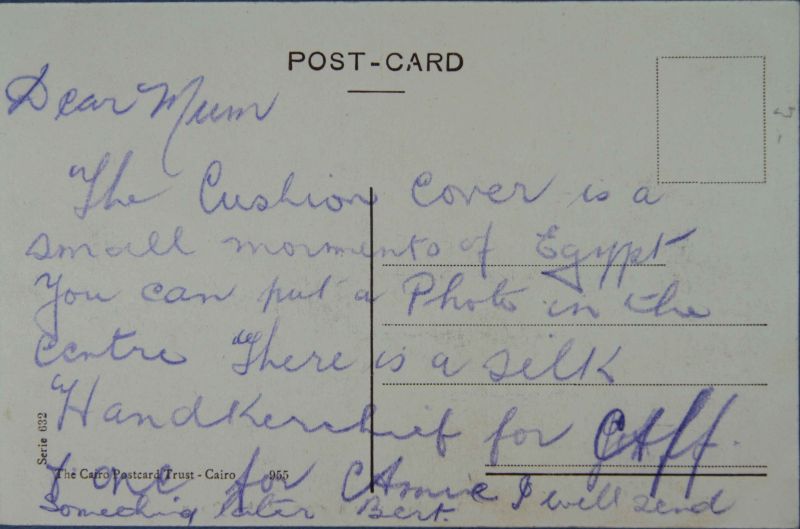 POST-CARD
Dear Mum
The Cushion Cover is a
small mormento of Egypt
You can put a Photo in the
centre There is a silk
Handkerchief for
& one for Annie I will send
Something later Bert.
Serie 632
The Cairo Postcard Trust - Cairo 955